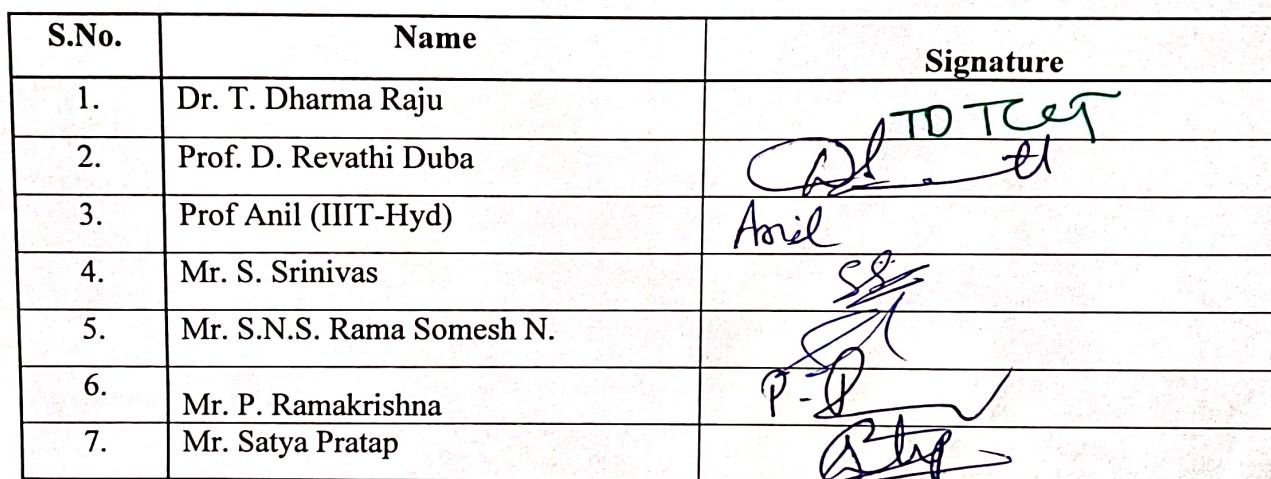 S.No. Name Signature
1. Dr. T. Dharma Raju
2. Prof. D. Revathi Duba
3. Prof Anil (IIIT-Hyd) Anil
4. Mr. S. Srinivas
5. Mr. S.N.S. Rama Somesh N.
6. Mr. P. Ramakrishna
7. Mr. Satya Pratap